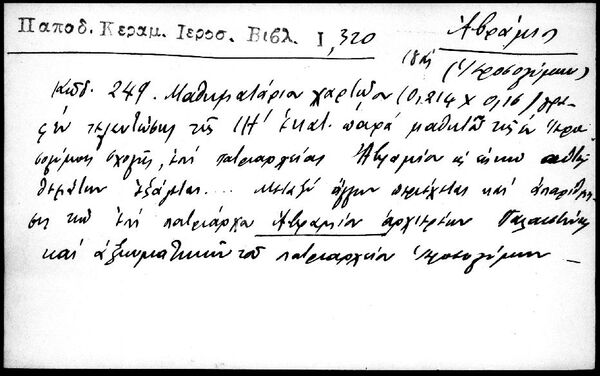 Παποδ. Κεραμ. Ιεροσ. Βιβλ. Ι, 320
Ἀβράμιος
(Ἱεροσολύμων)
Κωδ. 249. Μαθηματάριον χαρτῷον (0,214 χ 0,16) γρα-
φὲν τελευτώσης τῆς ΙΗ΄ ἑκατ. παρὰ μαθητοῦ τῆς ἐν Ἱερο-
σολύμοις σχολῆς, ἐπὶ πατριαρχείας Ἀβραμίου
Μεταξὺ ἄλλων περιέχεται καὶ ἀπαρίθμη-
σις τῶν ἐπὶ πατριάρχου Ἀβραμίου ἀρχιερέων Παλαιστίνης
καὶ ἀξιωματικῶν τοῦ πατριαρχείου Ἱεροσολύμων –